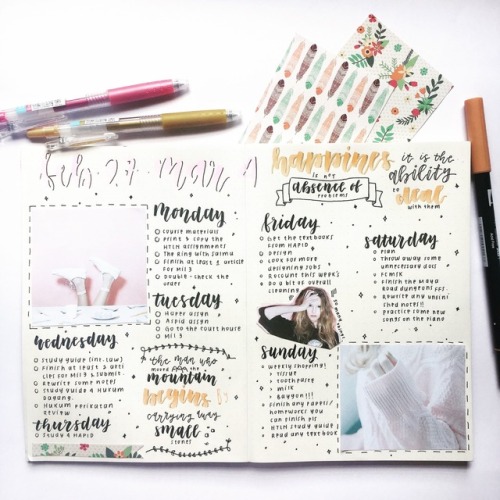 Feb 27 Mar 1
Monday
course materials
print & copy the
HTLN assignments
The Ring with Salma
Finish at least 2 article
for MIL 3
Double-check the
order
Tuesday
Hoppr assgn
Aspid assgn
Go to the court house
MIL 3
Wednesday
Study guide (Int. Law)
Finish at least 2 arti
cles for MIL 3 & submit
Rewrite some notes
Study guide 4 Hukum
Dagang
Hukum Perikatan
review
Thursday
Study 4 HAPID
the man who
moved the
mountain
begins
carrying away
small
stones
happiness
is not
absence of
problems
it is the
ability
to
deal
with them
Friday
Get the textbooks
from HAPID
Design
Look for more
designing jobs
Recount this week's
Do a bit of overall
cleaning
Saturday
Plan
Throw away some
unnecessary docs
Finish the Maya
Rewrite any unfini
shed notes!!
Practice some new
songs on the piano
Sunday
Weekly shopping!
Tissue
Toothpaste
Milk
Baygon!!!
Finish any papers/
homeworks you
can finish pls
HTLN study guide
Read any textbook